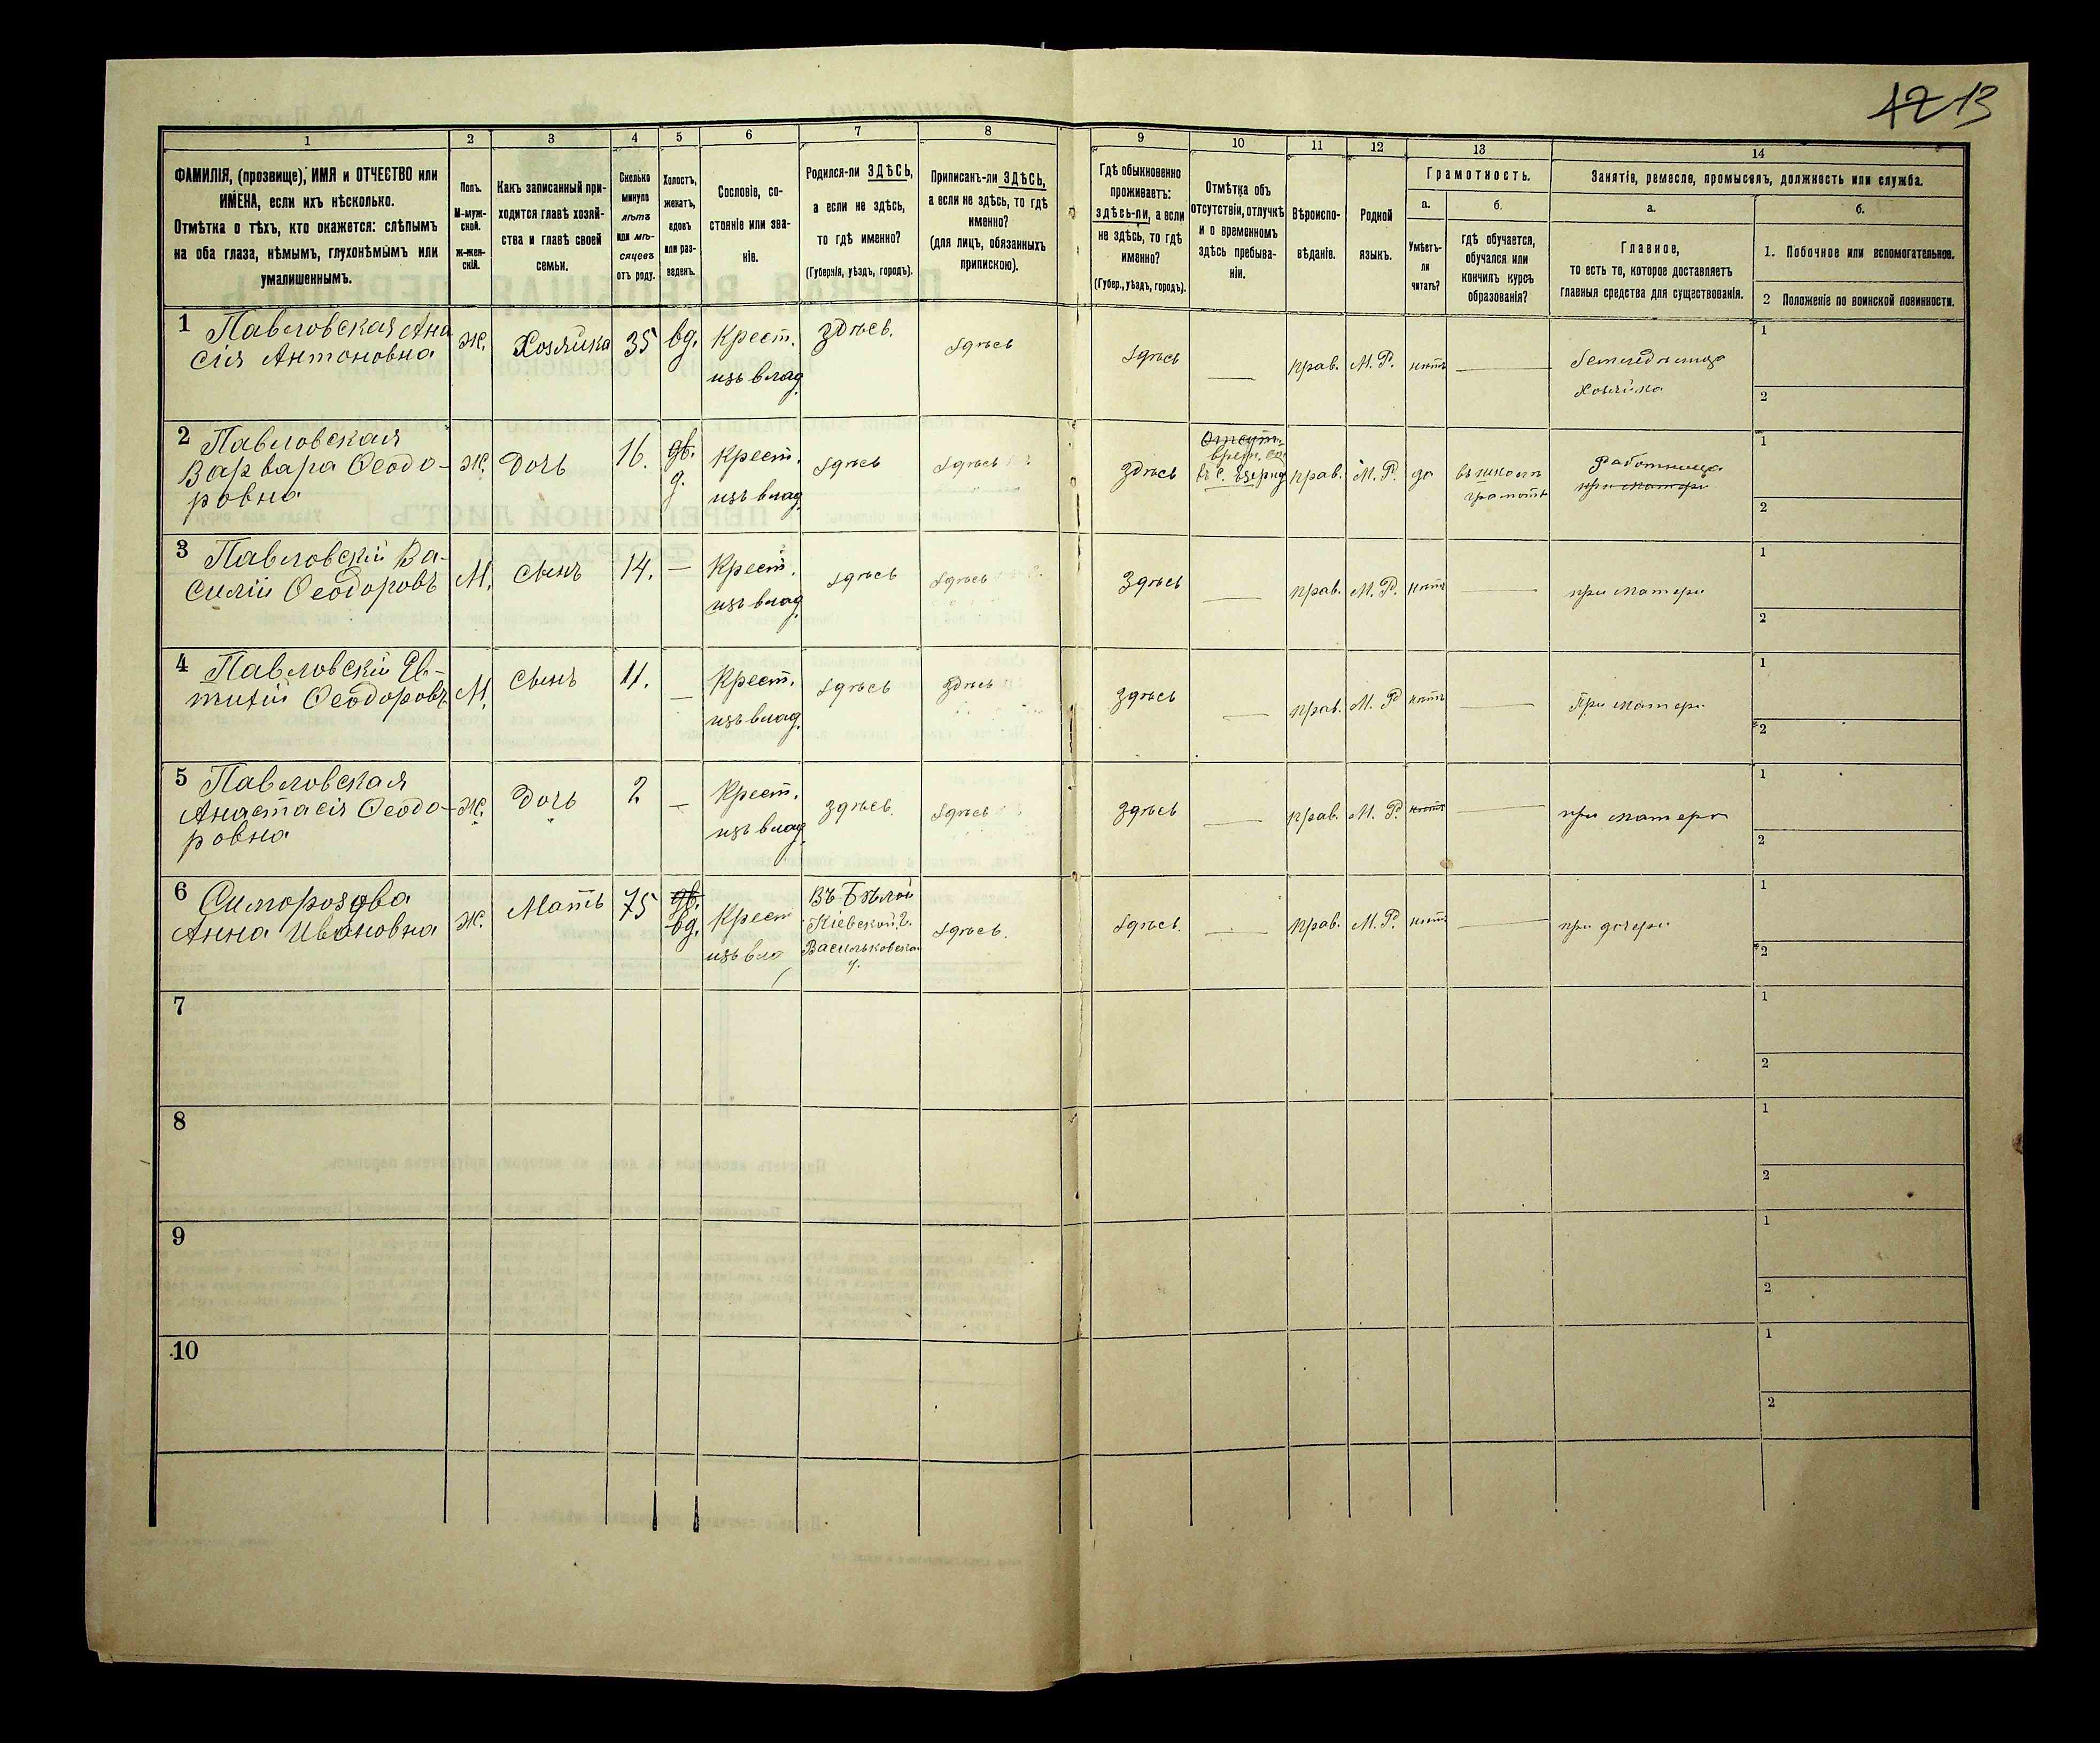 42 13
1
2
3
4
5
6
7
8
9
10
11
12
13
14
ФАМИЛІЯ, (прозвище), ИМЯ и ОТЧЕСТВО или
ИМЕНА, если ихъ нѣсколько.
Отмѣтка о тѣхъ, кто окажется: слѣпымъ
на оба глаза, нѣмымъ, глухонѣмымъ или
умалишеннымъ.
Полъ.
М-муж-
ской.
Ж-жен-
скій.
Какъ записанный при-
ходится главѣ хозяй-
ства и главѣ своей
семьи.
Сколько
минуло
лѣтъ
или мѣ-
сяцевъ
отъ роду.
Холостъ,
женатъ,
вдовъ
или раз-
веденъ.
Сословіе, со-
стояніе или зва-
ніе.
Родился-ли ЗДѢСЬ,
а если не здѣсь,
то гдѣ именно?
(Губернія, уѣздъ, городъ).
Приписанъ-ли ЗДѢСЬ,
а если не здѣсь, то гдѣ
именно?
(для лицъ, обязанныхъ
припискою).
Гдѣ обыкновенно
проживаетъ:
здѣсь-ли, а если
не здѣсь, то гдѣ
именно?
(Губер., уѣздъ, городъ).
Отмѣтка объ
отсутствіи, отлучкѣ
и о временномъ
здѣсь пребыва-
ніи.
Вѣроиспо-
вѣданіе.
Родной
языкъ.
Грамотность.
а.
Умѣетъ-
ли
читать?
б.
гдѣ обучается,
обучался или
кончилъ курсъ
образованія?
Занятіе, ремесло, промыселъ, должность или служба.
а.
Главное,
то есть то, которое доставляетъ
главныя средства для существованія.
б.
1. Побочное или вспомогательное.
2 Положеніе по воинской повинности.
1 Павловская Ана
сія Антоновна
Ж.
Хозяйка
35
вд.
Крест.
изъ влад.
здѣсь.
здѣсь
здѣсь
—
прав.
М. Р.
нѣтъ
—
Хозяйка
1
2
2 Павловская
Варвара Ѳеодо-
ровна
Ж.
Дочь
16.
дв.
д.
Крест.
изъ влад.
здѣсь
здѣсь
здѣсь
Отсут.
прав.
М. Р.
да
въ школѣ
грамотѣ
Работница
при матери
1
2
3 Павловскій Ва-
силій Ѳеодоровъ
М.
Сынъ
14.
—
Крест.
изъ влад.
здѣсь
здѣсь
здѣсь
—
прав.
М. Р.
нѣтъ
—
при матери
1
2
4 Павловскій Ев-
тихій Ѳеодоровъ
М.
Сынъ
11.
—
Крест.
изъ влад.
здѣсь
здѣсь
здѣсь
—
прав.
М. Р
нѣтъ
—
При матери
1
2
5 Павловская
Анастасія Ѳеодо-
ровна
Ж.
Дочь
2
—
Крест.
изъ влад.
здѣсь.
здѣсь
здѣсь
—
прав.
М. Р.
нѣтъ
—
при матери
1
2
6
Анна Ивановна
Ж.
Мать
75
дв.
вд.
Крест
изъ вла
Въ Бѣлой
Кіевской г.
Васильковска
у.
здѣсь.
здѣсь.
—
прав.
М. Р.
нѣтъ
—
при дочери
1
2
7
1
2
8
1
2
9
1
2
10
1
2